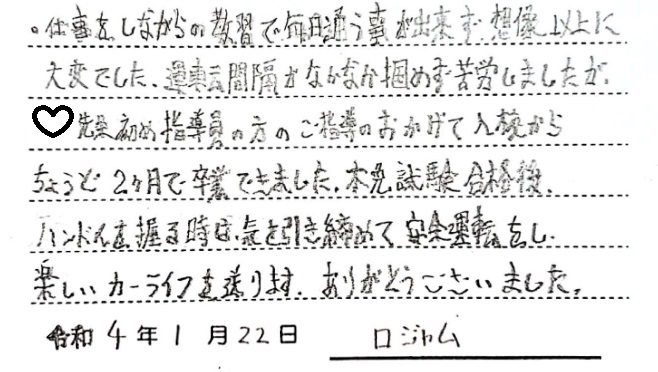 。仕事をしながらの教習で毎日通う事が出来ず想像以上に
大変でした、運転間隔がなかなか掴めず苦労しましたが、
初め指導員の方のご指導のおかげで入校から
ちょうど2ヶ月で卒業できました。本免試験合格後、
ハンドルを握る時は、気を引き締めて安全運転をし、
楽しいカーライフを送ります。ありがとうございました。
令和4年1月22日 ロジャム